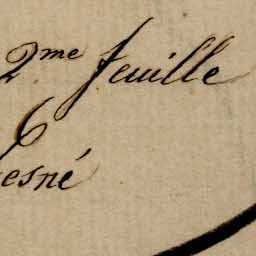 2me feuille
6
esné